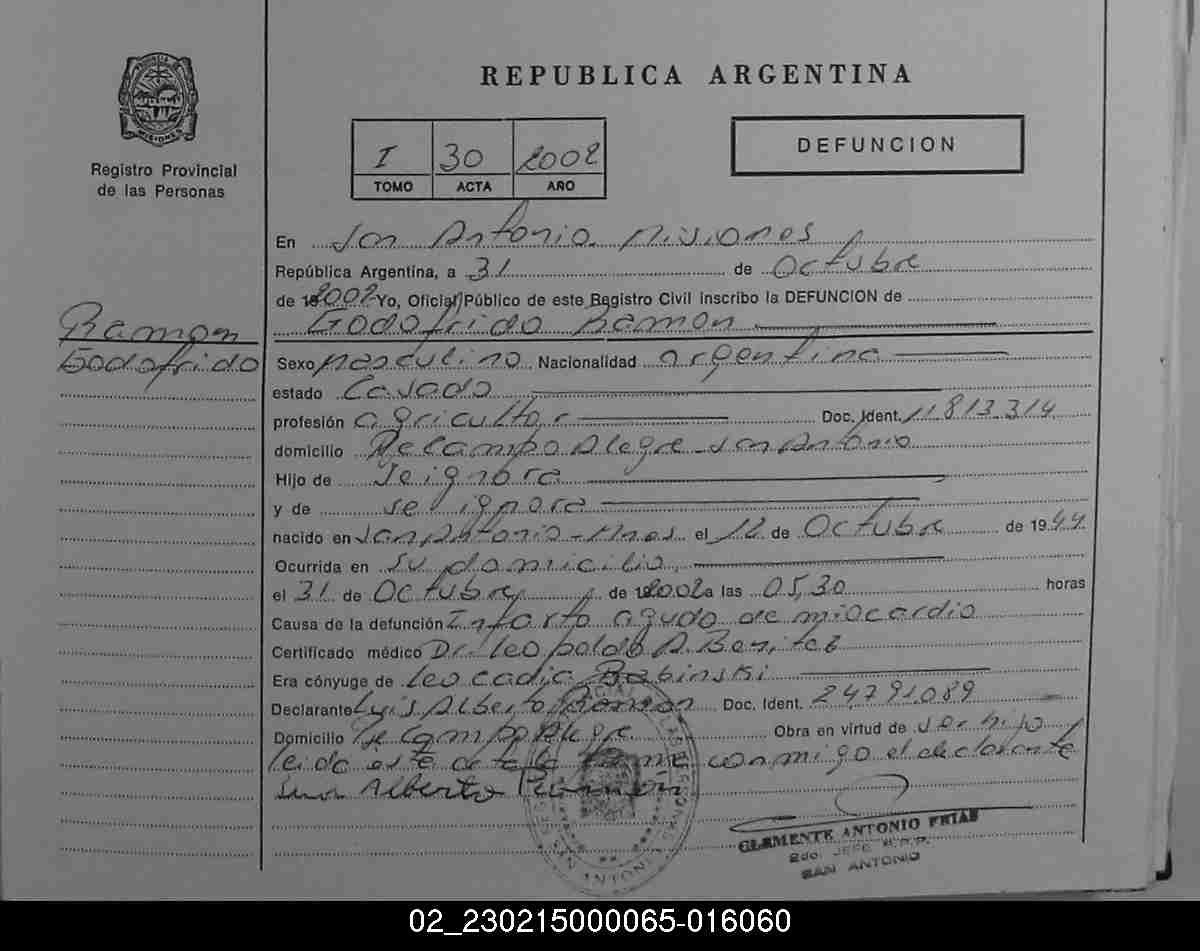 REPUBLICA ARGENTINA
PROVINCIA DE
MISIONES
Registro Provincial
de las Personas
I 30 2002
TOMO ACTA AÑO
DEFUNCION
En San Antonio Misiones
República Argentina, a 31 de Octubre
de 2002 Yo, Oficial Público de este Registro Civil inscribo la DEFUNCION de
Godofrido Ramon
Ramon
Godofrido
Sexo masculino Nacionalidad argentina
estado Casado
profesión agricultor Doc. Ident. 11813.314
domicilio De Campo Alegre - San Antonio
Hijo de se ignora
y de se ignora
nacido en San Antonio - Mnes el 12 de Octubre de 1944
Ocurrida en su domicilio
el 31 de Octubre de 2002 a las 05,30 horas
Causa de la defunción Infarto agudo de miocardio
Certificado médico Dr. Leopoldo A. Benitez
Era cónyuge de Leocadia Babinski
Declarante Luis Alberto Ramon Doc. Ident. 24791089
Domicilio De Campo Alegre Obra en virtud de ser hijo
leida esta acta la firma conmigo el declarante
Alberto Ramon
CLEMENTE ANTONIO FRIAS
2do. JEFE R.P.P.
SAN ANTONIO
02_230215000065-016060